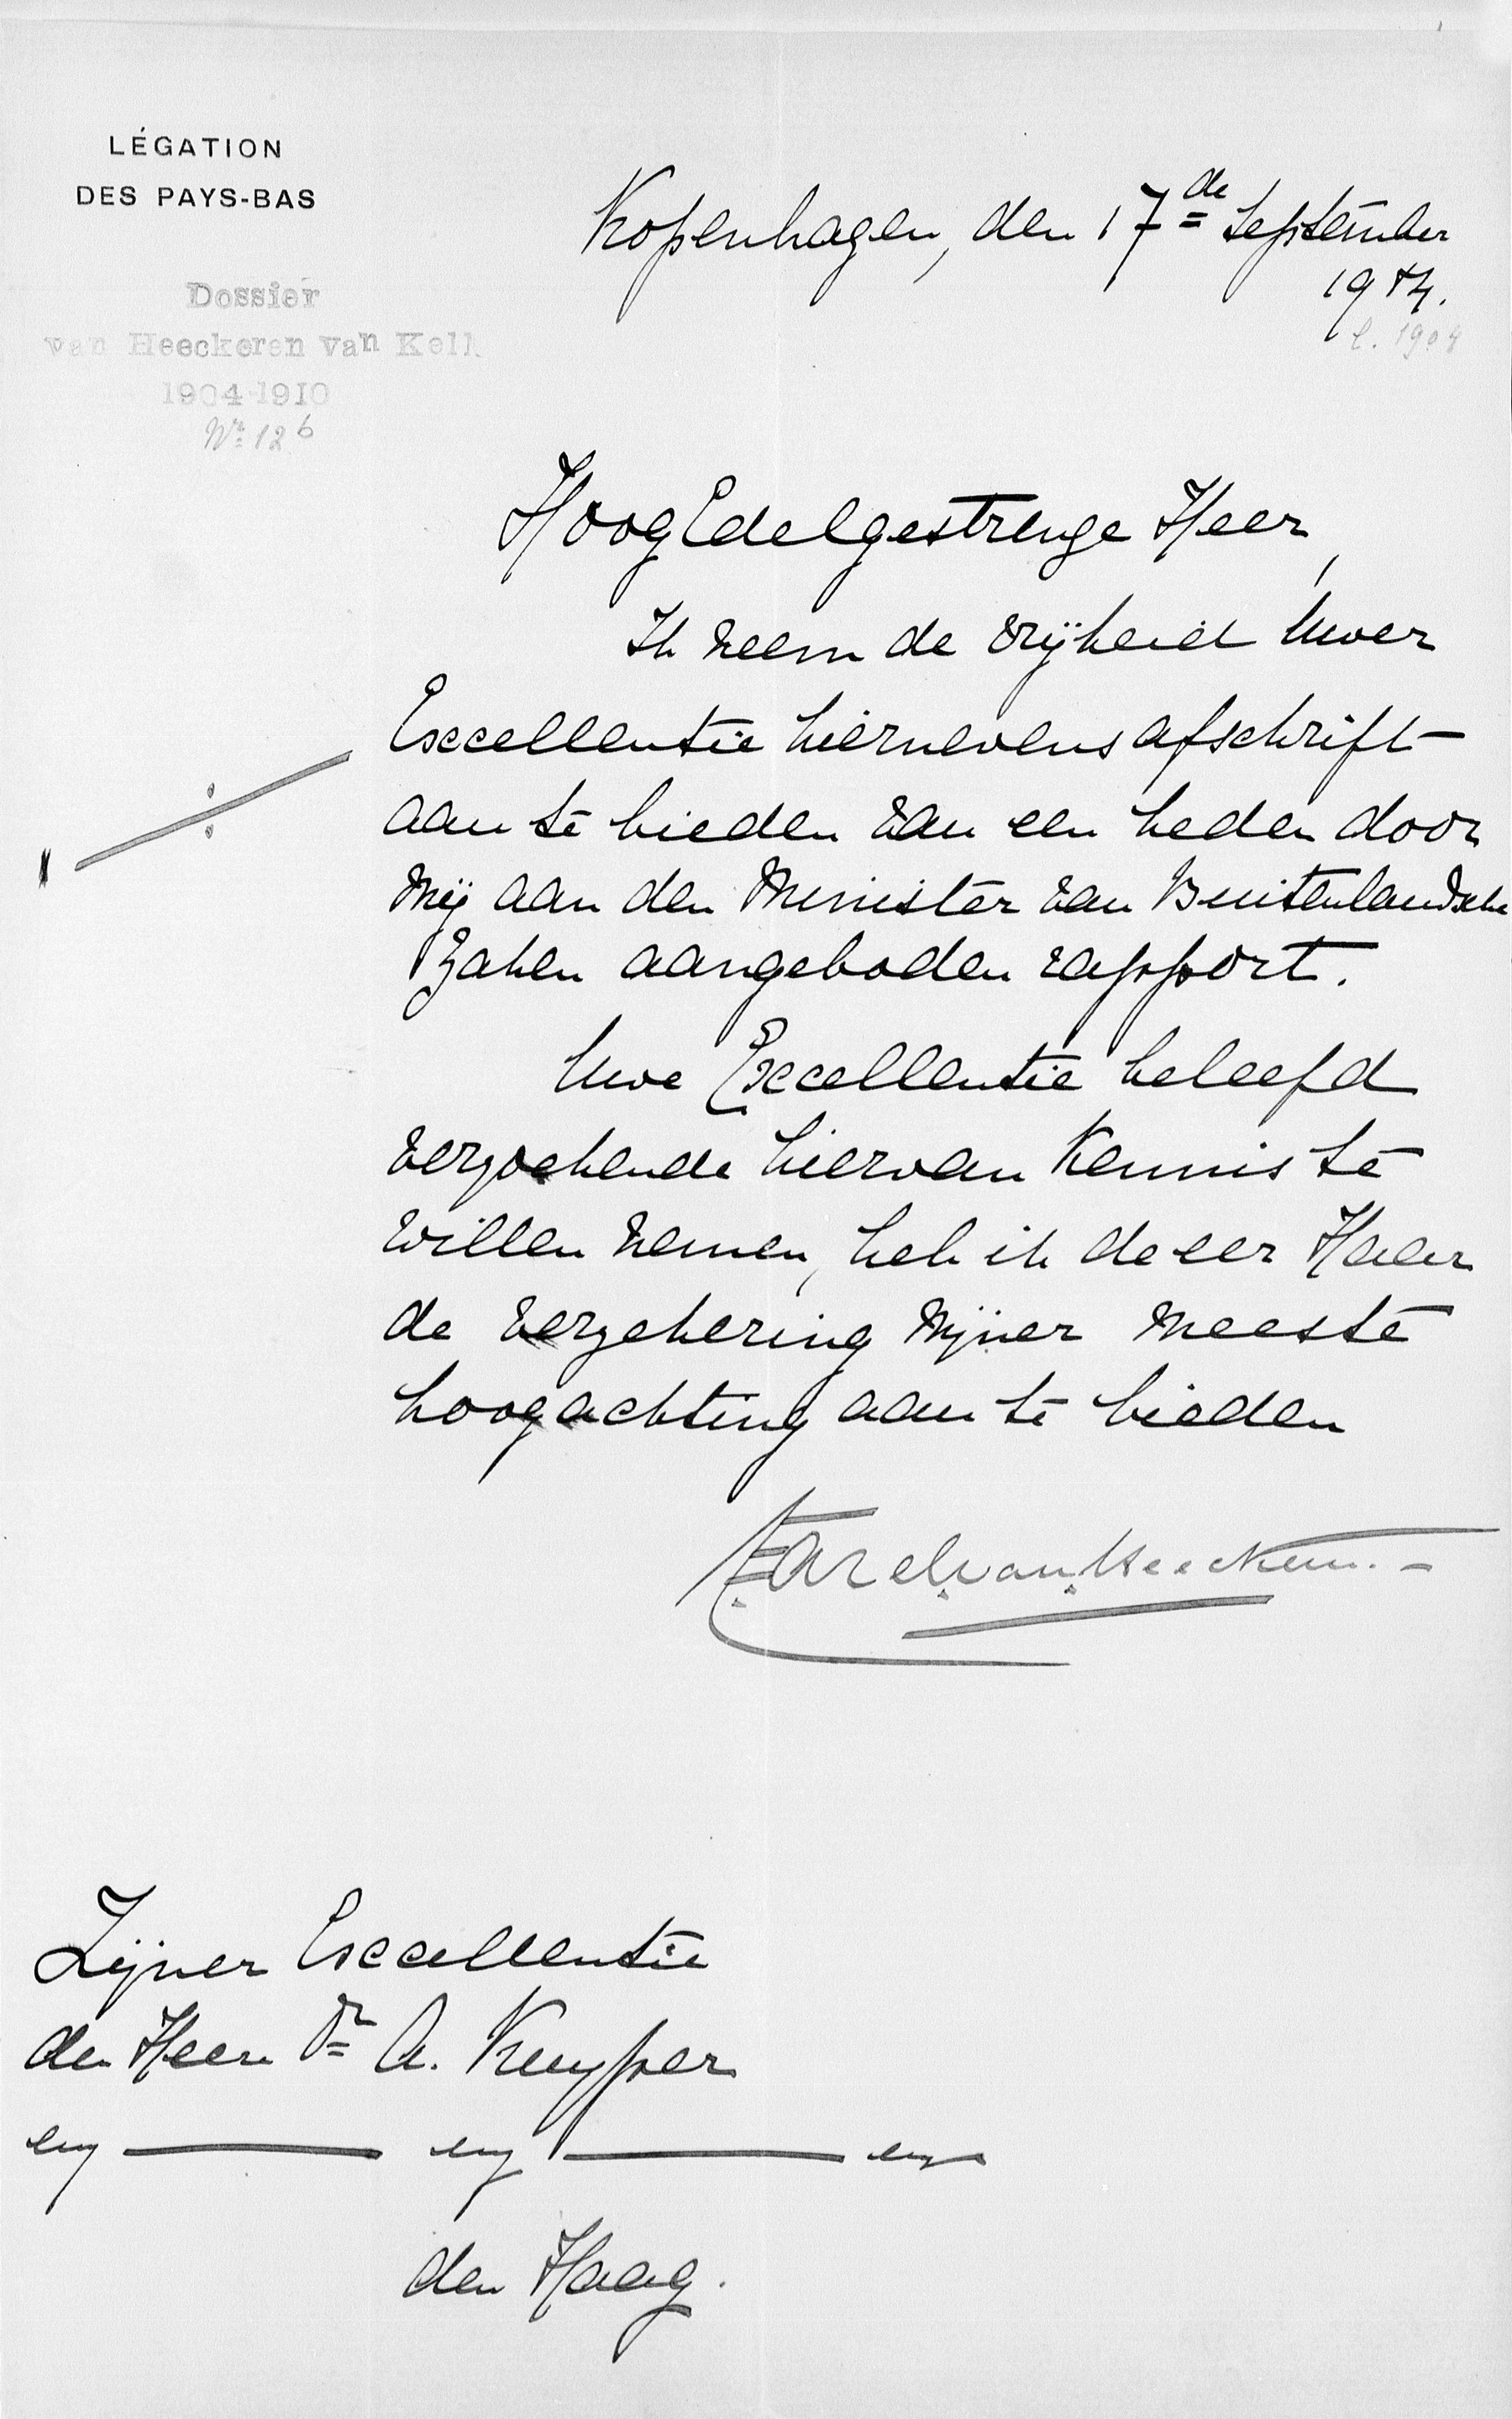 LÉGATION
DES PAYS-BAS
Kopenhagen, den 17de September
1904.
l. 1904
Dossier
van Heeckeren van Kell
1904-1910
Nr. 126
HoogEdelgestrenge Heer,
Ik neem de vrijheid Uwer
Excellentie hiernevens afschrift
aan te bieden van een heden door
mij aan den Minister van Buitenlandsche
Zaken aangeboden rapport.
Uwe Excellentie beleefd
verzoekende hiervan kennis te
willen nemen, heb ik de eer Haar
de verzekering mijner meeste
hoogachting aan te bieden
Karel van Heeckeren.
Zijner Excellentie
den Heer Dr A. Kuyper
enz ——— enz ——— enz
den Haag.